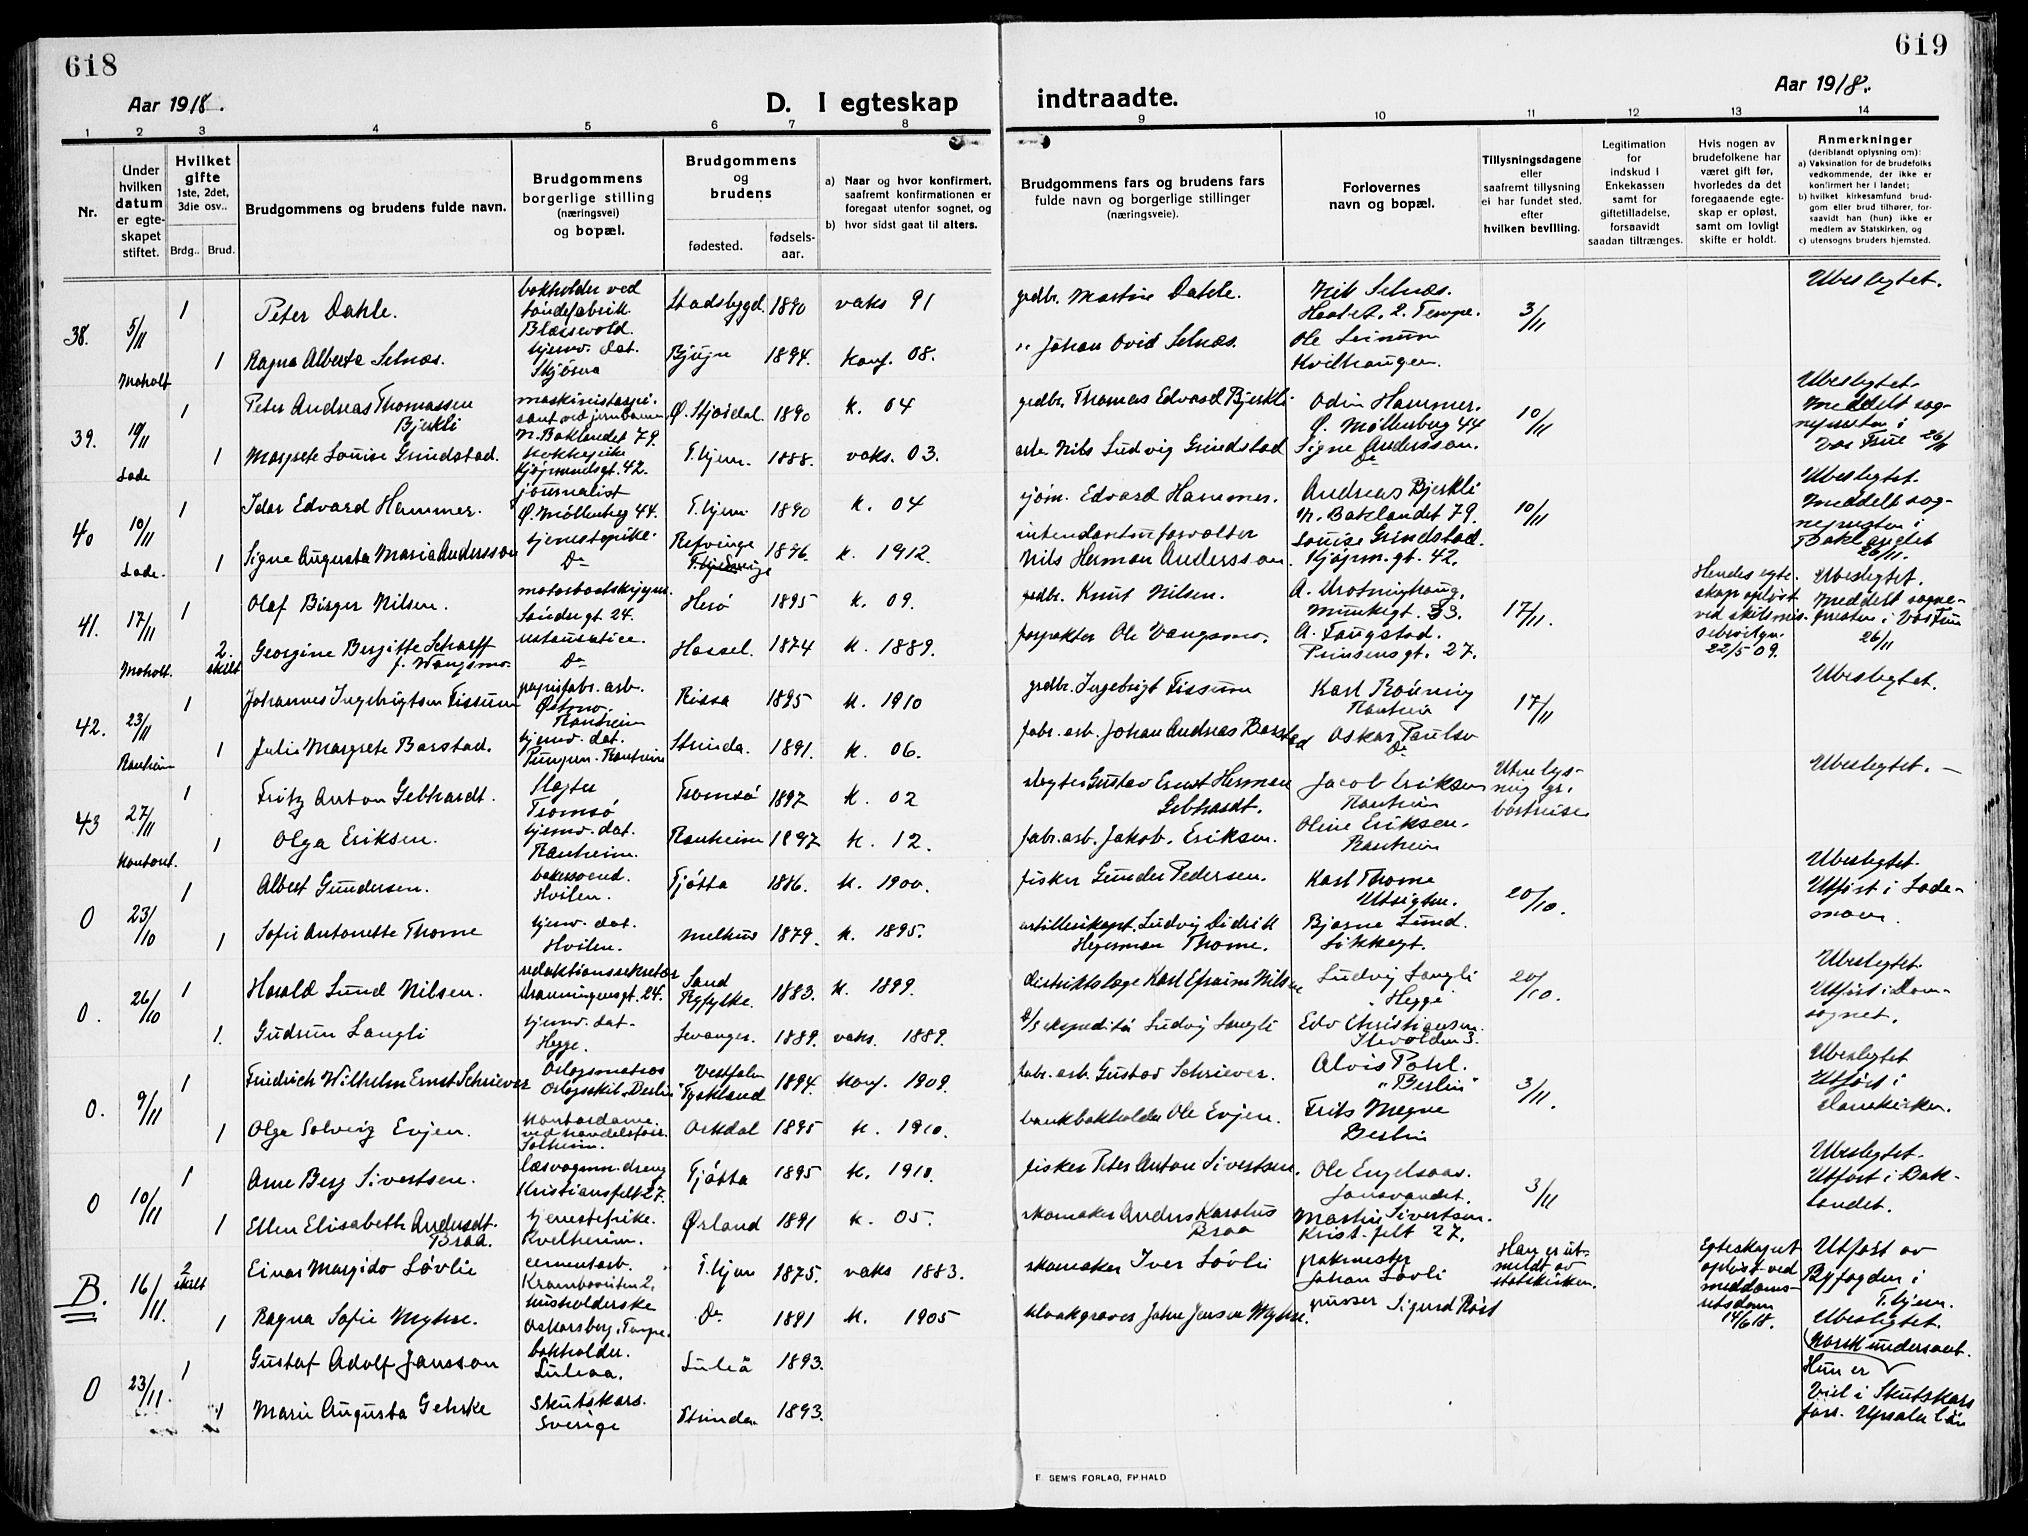 618
619
Aar 1918.
Aar 1918.
D. I egteskap
indtraadte.
1 2 3 4 5 6 7 8 9 10 11 12 13 14
Nr.
Under hvilken datum er egteskapet stiftet.
Hvilket gifte
1ste, 2det, 3die osv..
Brdg.. Brud.
Brudgommens og brudens fulde navn.
Brudgommens borgerlige stilling (næringsvei) og bopæl.
Brudgommens og brudens
fødested.
fødselsaar.
a) Naar og hvor konfirmert, saafremt konfirmationen er foregaat utenfor sognet, og
b) hvor sidst gaat til alters.
Brudgommens fars og brudens fars fulde navn og borgerlige stillinger (næringsveie).
Forlovernes navn og bopæl.
Tillysningsdagene eller saafremt tillysning ei har fundet sted, efter hvilken bevilling.
Legitimation for indskud i Enkekassen samt for giftetilladelse, forsaavidt saadan tiltrænges.
Hvis nogen av brudefolkene har været gift før, hvorledes da det foregaaende egteskap er opløst, samt om lovligt skifte er holdt.
Anmerkninger
(deriblandt oplysning om):
a) Vaksination for de brudefolks vedkommende, der ikke er konfirmert her i landet;
b) hvilket kirkesamfund brudgom eller brud tilhører, forsaavidt han (hun) ikke er medlem av Statskirken, og
c) utensogns bruders hjemsted.
38. 5/11 Moholt
1 Peter Dahle. bokholder ved tøndefabrik. Blæssevold. Stadsbygd 1890 vaks 91 grdbr. Martin Dahle. Nils Selnæs. 3/11 Ubeslegtet.
1 Ragna Alberta Selnæs. hjemv. dat. Bjugn 1894. konf. 08. " Johan Ovid Selnæs. Ole Leinum Kvilhaugen.
39. 10/11 Lade
1 Peter Andreas Thomassen Bjerkli N. Baklandet 79. Ø. Stjørdal. 1890 k. 04 grdbr. Thomas Edvard Bjerkli Odin Hammer. Ø. Møllenberg 44 10/11 Ubeslegtet. Meddelt sognepresten i Vor Frue 26/11
1 Margrete Louise Grindstad. kokkepike Kjøpmandsgt. 42. T.hjem. 1888. vaks. 03. Nils Ludvig Grindstad Signe Andersson. Do
40 10/11 Lade.
1 Idar Edvard Hammer. journalist Ø. Møllenberg 44. T.hjem 1890 k. 04 sjøm. Edvard Hammer. Andreas Bjerkli N. Baklandet 79. 10/11 Ubeslegtet. Meddelt sognepresten i Baklandet 26/11.
1 Signe Augusta Maria Andersson tjenestepike. Do 1896. k. 1912. intendanturforvalter Nils Herman Andersson. Louise Grindstad. Kjøpm. gt. 42.
41. 17/11 Moholt.
1 Olaf Birger Nilsen. Søndregt 24. Herø 1895 k. 09. grdbr. Knut Nilsen. A. Drotninghaug. Munkegt. 33. 17/11. Hendes egteskap opløst ved skilsmis. 22/5 09. Ubeslegtet. Meddelt sognepresten i Vor Frue 26/11
2. skilt Georgine Bergitte Scharff f. Wangsmo. Do Hassel. 1874 k. 1889. Ole Vangsmo. A. Faugstad. Prinsensgt. 27.
42. 23/11 Ranheim
1 Johannes Ingebrigtsen Fissum papirfabr. arb. Ranheim Rissa 1895 k. 1910 grdbr. Ingebrigt Fissum Karl Rønning Ranheim 17/11 Ubeslegtet.
1 Julie Margrete Barstad. hjemv. dat. Ranheim Strinda. 1891. k. 06. fabr. arb. Johan Andreas Barstad Oskar Paulsen Do
43 27/11 Kontoret.
1 Fritz Anton Gebhardt. Slagter Tromsø Tromsø 1897 k. 02 slagter Gustav Ernst Herman Gebhardt. Jacob Eriksen Ranheim Ubeslegtet. -
1 Olga Eriksen. hjemv. dat. Ranheim. Ranheim 1897 k. 12. fabr. arb. Jakob. Eriksen. Oline Eriksen. Ranheim
0 23/10
1 Albert Gundersen. bakersvend. Hvilen. Tjøtta 1886. k. 1900. fisker Gunder Pedersen. Karl Thome Utsigten. 20/10. Ubeslegtet. Utført i Lademoen.
1 Sofie Antonette Thome hjemv. dat. Hvilen. Melhus 1879. k. 1895. artillerikapt. Ludvig Didrik Hegerman Thome. Bjarne Lund.
0. 26/10
1 Harald Lund Nilsen. redaktionssekretær Dronningensgt. 24. Sand Ryfylke. 1883. k. 1899. distriktslæge Karl Efraim Nilsen Ludvig Langli "Hegge" 20/10. Ubeslegtet. Utført i Domsognet.
1. Gudrun Langli hjemv. dat. Hegge. Levanger. 1889. vaks. 1889. Ludvig Langli Edv Christiansen. Ilevolden 3.
0. 9/11
1 Friedrich Wilhelm Ernst Schriever Orlogsmatros Orlogsskib „Berlin" Vestfalen Tyskland 1894. konf. 1909. fabr. arb. Gustav Schriever. Alvis Pohl. „Berlin" 3/11. Ubeslegtet Utført i
1 Olga Solveig Evjen. Kontordame. Solheim. Orkdal 1895 k. 1910. bankbokholder Ole Evjen. Frits Megne Berlin
0 10/11
1 Arne Berg Sivertsen. Kristiansfelt 27. Tjøtta 1895 k. 1910. fisker Peter Anton Sivertsen. Ole Engelsaas. Jonsvandet. 3/11 Ubeslegtet. Utført i Baklandet.
1 Ellen Elisabeth Andersdt. Braa. tjenestepike. Kvelheim. Ørland 1891 k. 05. skomaker Anders Karolus Braa Martin Sivertsen. Krist. felt 27.
B. 16/11.
2 skilt Einar Margido Løvlie cementarb. T.hjem 1875. vaks 1883. skomaker Iver Løvli Johan Løvli Han er utmeldt av statskirken. Egteskapet opløst ved 14/6 18. Utført av Byfogden i T.hjem. Ubeslegtet.
1 Ragna Sofie Myhre. husholderske Do 1891 k. 1905 kloakgraver Johan Jensen Myhre. pusser Sigurd Røst
0 23/11.
1 Gustaf Adolf Jansson bokholder. Luleaa. Luleå 1893. norsk undersaat. Hun er
1 Marie Augusta Gehrke Skutskärs. Sverige Strinda 1893. Viet i Skutskärs förs. Upsala län
E. SEM'S FORLAG, FR.HALD